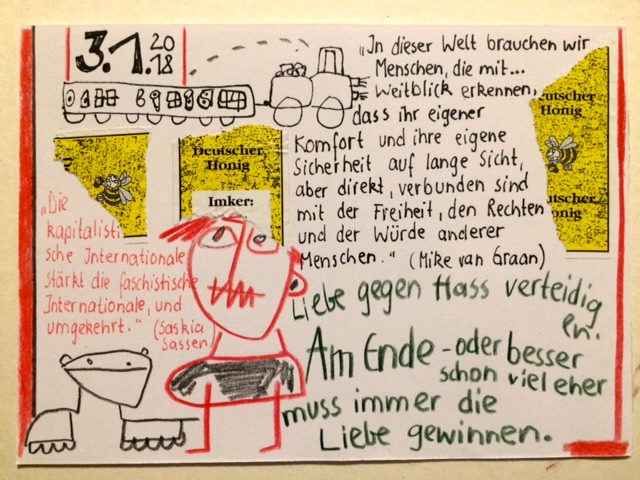 3.1.2018
„In dieser Welt brauchen wir
Menschen, die mit...
Weitblick erkennen,
dass ihr eigener
Komfort und ihre eigene
Sicherheit auf lange Sicht,
aber direkt, verbunden sind
mit der Freiheit, den Rechten
und der Würde anderer
Menschen.“ (Mike van Graan)
Deutscher
Honig
Imker:
eutscher
Honig
utscher
onig
„Die
kapitalisti
sche Internationale
stärkt die faschistische
Internationale, und
umgekehrt.“ (Saskia
Sassen)
Liebe gegen Hass verteidig
en.
Am Ende - oder besser
schon viel eher
muss immer die
Liebe gewinnen.